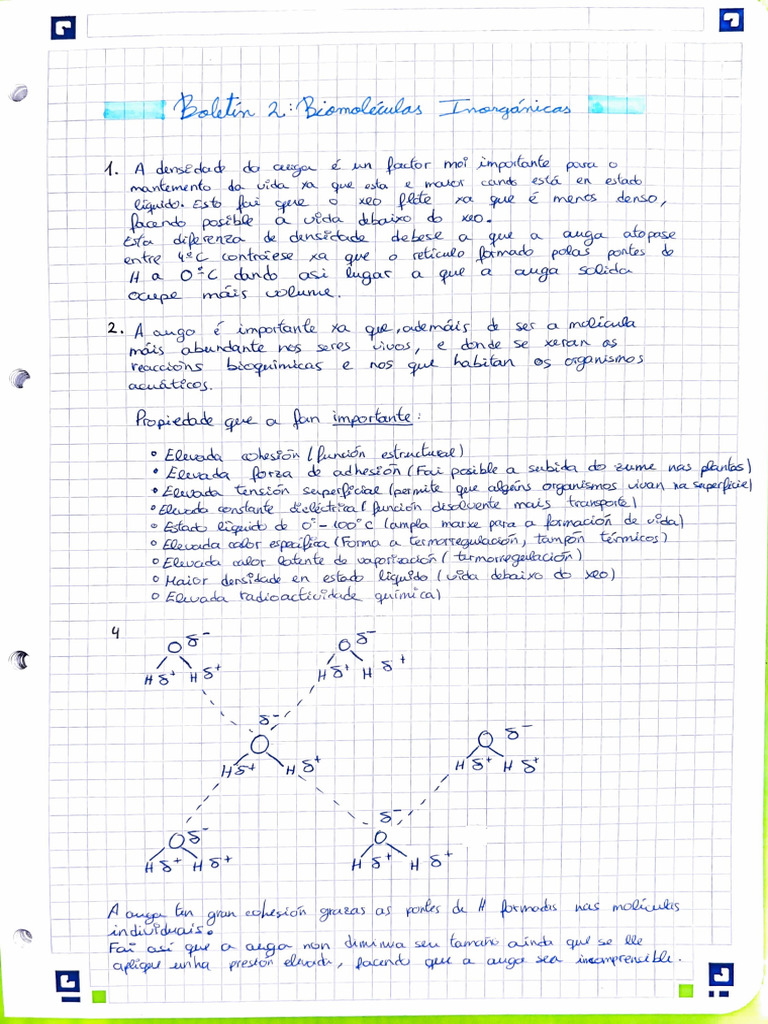 Boletín 2: Biomoléculas Inorgánicas
1. A densidade da auga é un factor moi importante para o
mantemento da vida xa que esta e maior cando está en estado
líquido. Esto fai que o xeo flote xa que é menos denso,
facendo posible a vida debaixo do xeo.
Esta diferenza de densidade debese a que a auga atopase
entre 4ºC contráese xa que o retículo formado polas pontes de
H a 0ºC dando asi lugar a que a auga solida
ocupe máis volume.
2. A auga é importante xa que, ademáis de ser a molícula
máis abundante nos seres vivos, e donde se xeran as
reaccións bioquímicas e nos que habitan os organismos
acuáticos.
Propiedade que a fan importante:
° Elevada cohesión (función estructural)
• Elevada forza de adhesión (Fai posible a subida do zume nas plantas)
° Elevada tensión superficial (permite que algúns organismos vivan na superficie)
° Elevada constante dieléctrica (función disolvente mais transporte)
° Estado líquido de 0°-100°C (ampla marxe para a formación de vida)
° Elevada calor especifica (Forma a termorregulación, tampón térmicos)
° Elevada calor latente de vaporización (termorregulación)
° Maior densidade en estado líquido (vida debaixo do xeo)
° Elevada radioactividade química)
4
O δ⁻ O δ⁻
H δ⁺ H δ⁺ H δ⁺ H δ⁺
δ⁻
O O δ⁻
H δ⁺ H δ⁺ H δ⁺ H δ⁺
O δ⁻ δ⁻
O
H δ⁺ H δ⁺ H δ⁺ H δ⁺
A auga ten gran cohesión grazas as pontes de H formadas nas molículas
individuais.
Fai así que a auga non diminua seu tamaño ainda que se lle
aplique unha presión elevada, facendo que a auga sea incomprensible.